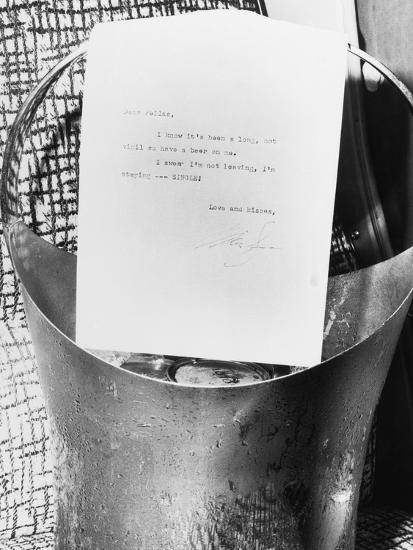 Dear Fellas,
I know it's been a long, hot
vigil so have a beer on me.
I swear I'm not leaving, I'm
staying --- SINGLE!
Love and kisses,